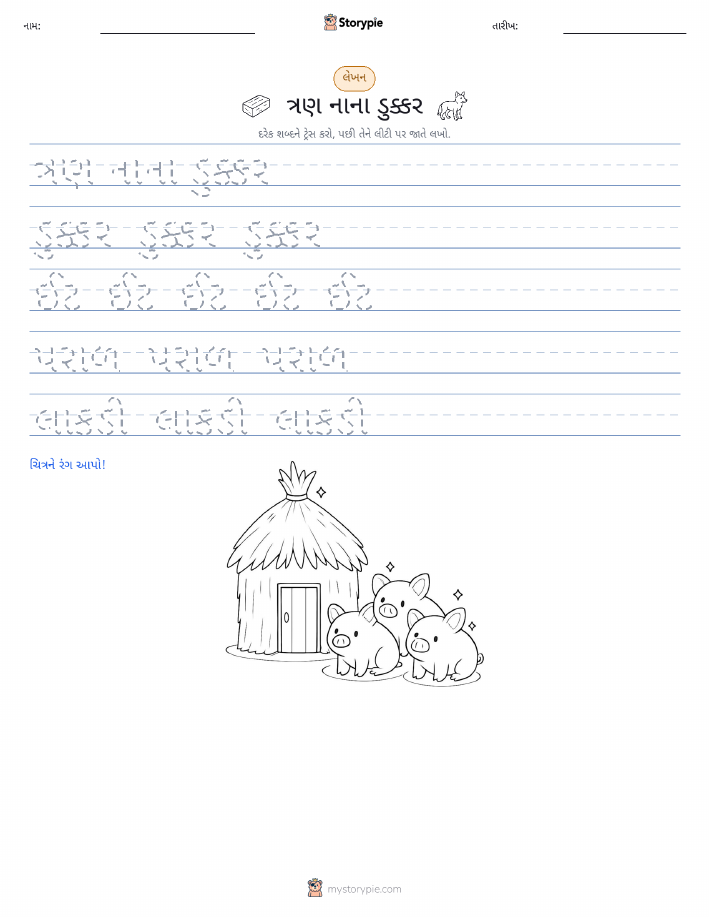 નામ:
Storypie
તારીખ:
લેખન
ત્રણ નાના ડુક્કર
દરેક શબ્દને ટ્રેસ કરો, પછી તેને લીટી પર જાતે લખો.
ત્રણ નાના ડુક્કર
ડુક્કર ડુક્કર ડુક્કર
ઈંટ ઈંટ ઈંટ ઈંટ ઈંટ
પરાળ પરાળ પરાળ
લાકડી લાકડી લાકડી
ચિત્રને રંગ આપો!
mystorypie.com